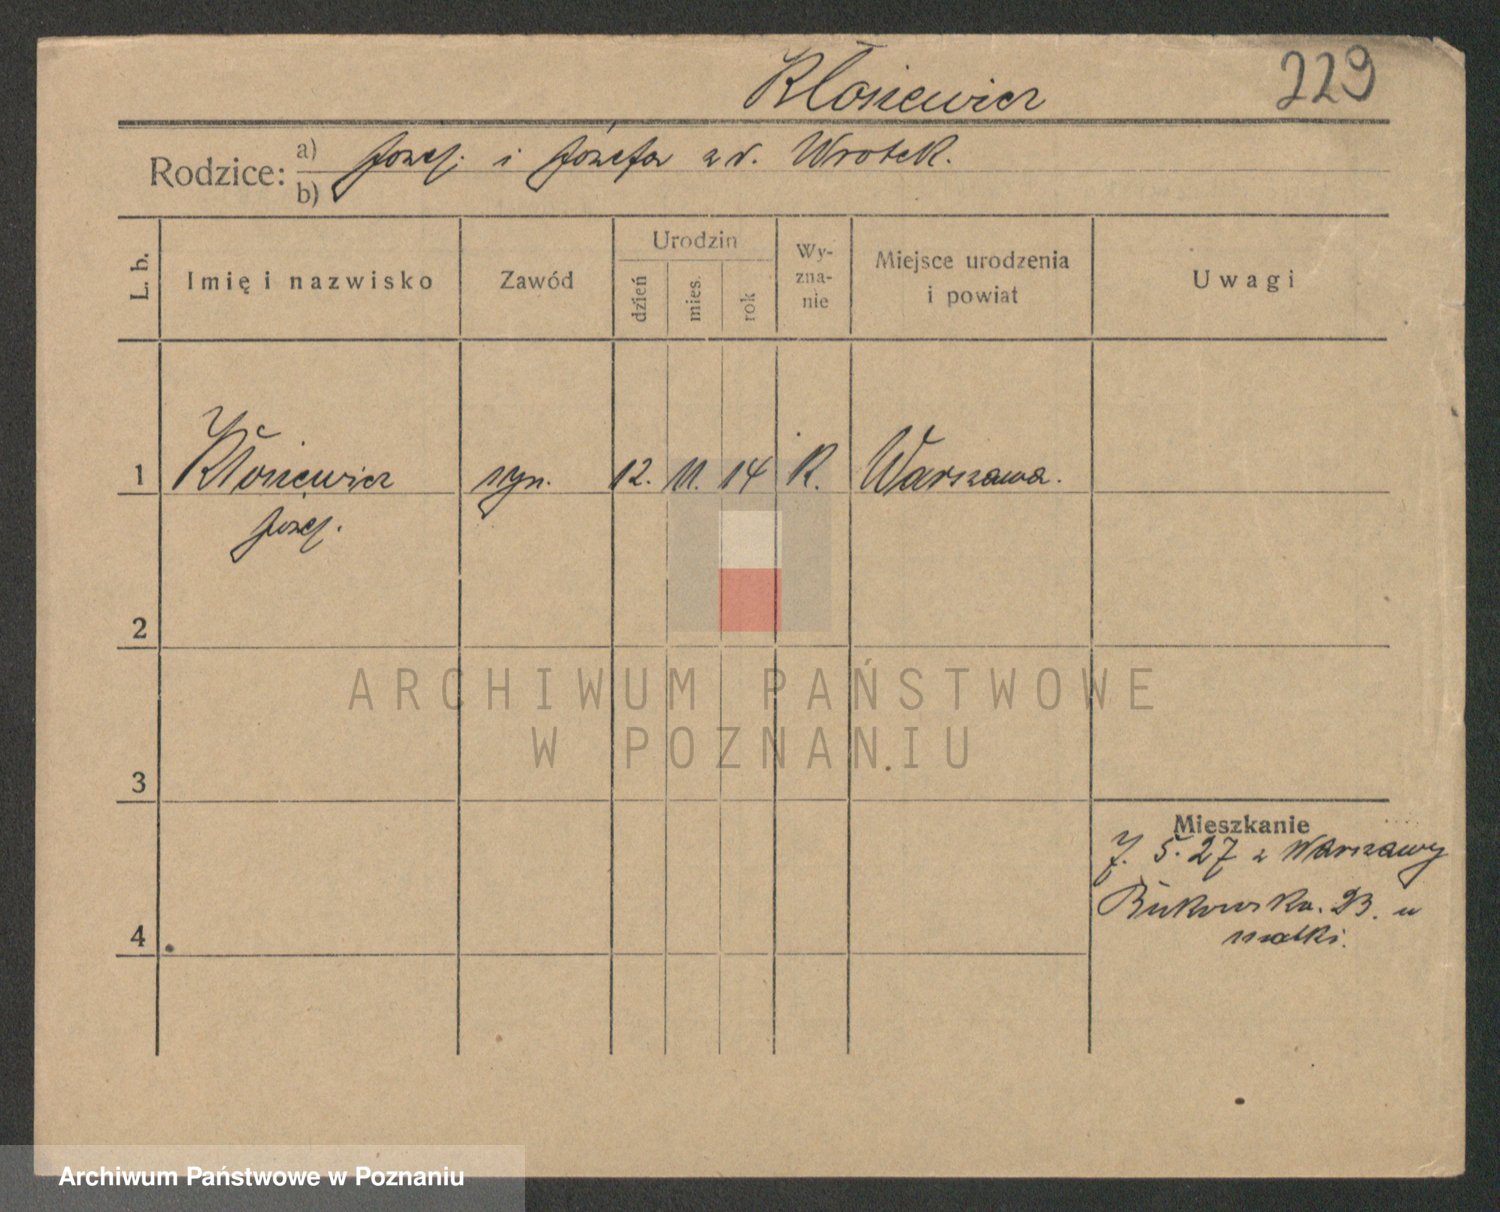 Kłosiewicz 229
Rodzice: a) Józef. i Józefa z d. Wrotek.
b)
L. b. Imię i nazwisko Zawód Urodzin dzień mies. rok Wy-zna-nie Miejsce urodzenia i powiat Uwagi
1 Kłosiewicz syn. 12. 11. 14 R. Warszawa.
Józef.
2
ARCHIWUM PAŃSTWOWE
W POZNANIU
3
Mieszkanie
7. 5. 27 z Warszawy
Bukowska. 23. u
matki.
4
Archiwum Państwowe w Poznaniu